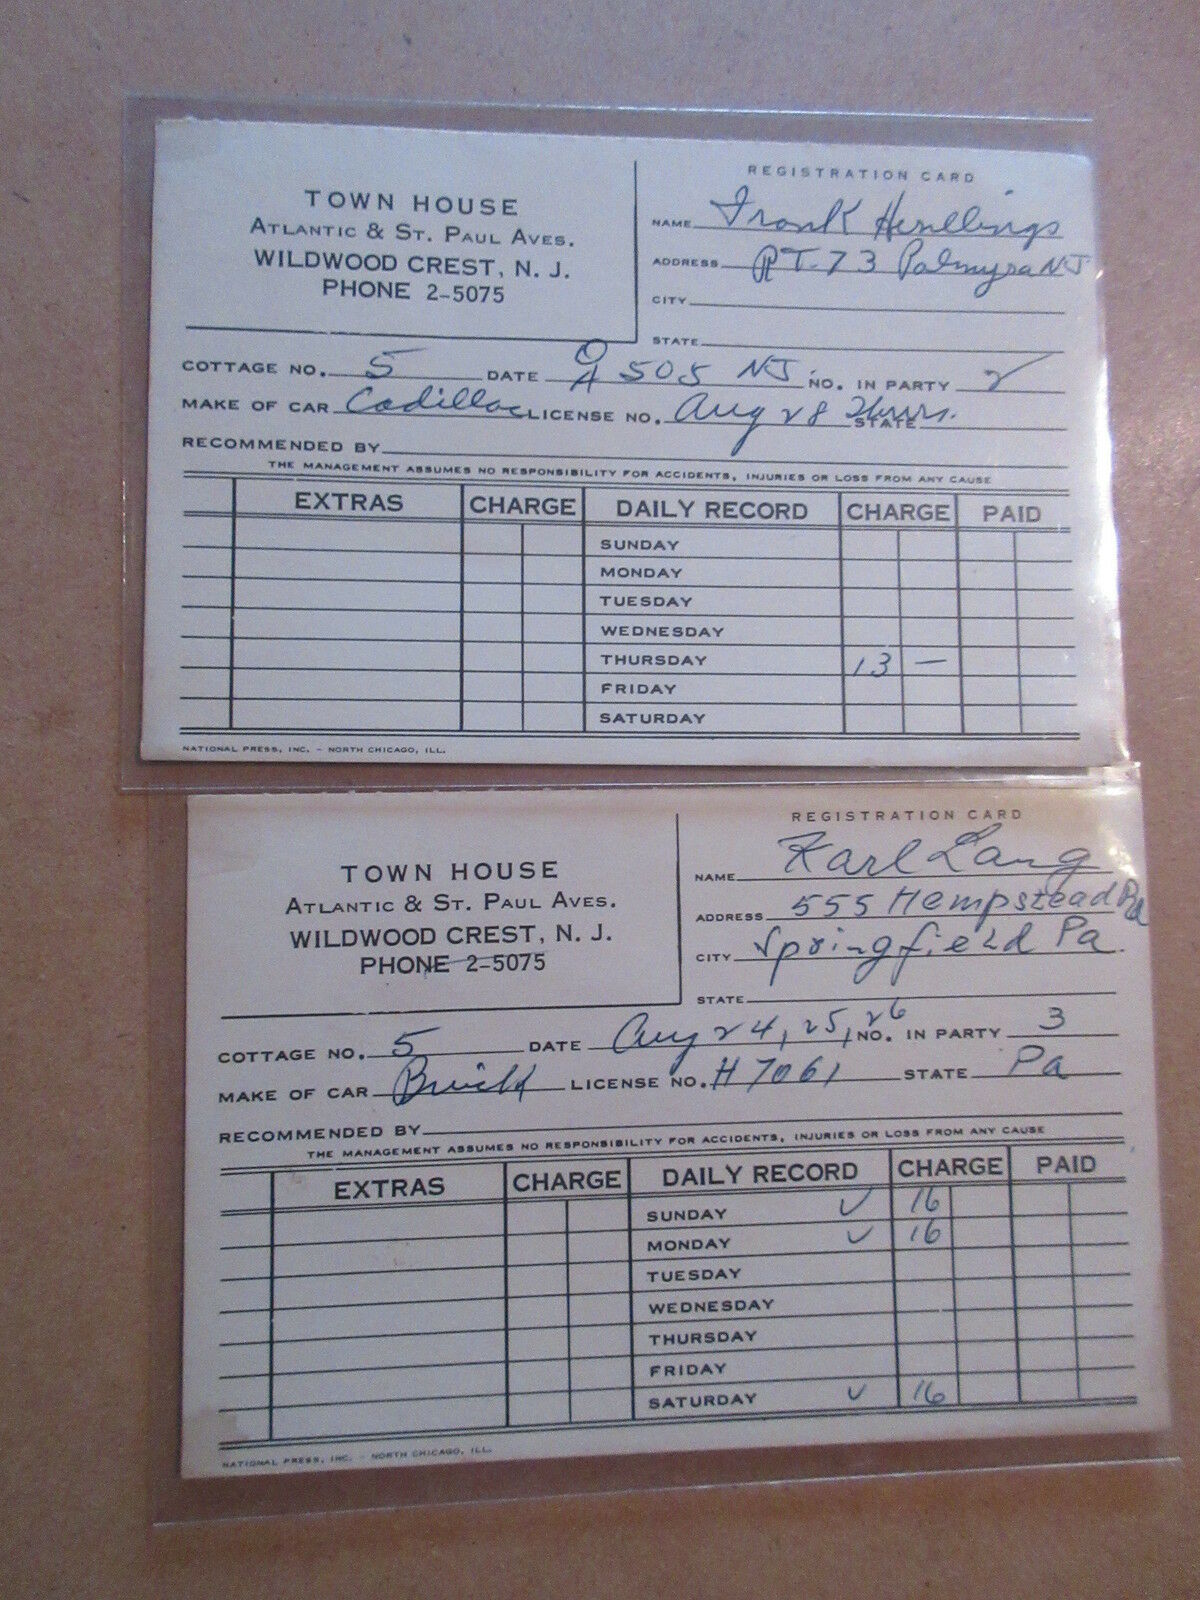 REGISTRATION CARD
TOWN HOUSE
ATLANTIC & ST. PAUL AVES.
WILDWOOD CREST, N. J.
PHONE 2-5075
NAME Frank
ADDRESS RT-73 Palmyra NJ
CITY
STATE
COTTAGE NO. 5 DATE OA 505 NJ. NO. IN PARTY 2
MAKE OF CAR Cadillac LICENSE NO. Aug 28 Thurs. STATE
RECOMMENDED BY
THE MANAGEMENT ASSUMES NO RESPONSIBILITY FOR ACCIDENTS, INJURIES OR LOSS FROM ANY CAUSE
EXTRAS CHARGE DAILY RECORD CHARGE PAID
SUNDAY
MONDAY
TUESDAY
WEDNESDAY
THURSDAY 13 —
FRIDAY
SATURDAY
NATIONAL PRESS, INC. - NORTH CHICAGO, ILL.
REGISTRATION CARD
TOWN HOUSE
ATLANTIC & ST. PAUL AVES.
WILDWOOD CREST, N. J.
PHONE 2-5075
NAME Karl Lang
ADDRESS 555 Hempstead Rd
CITY Springfield Pa.
STATE
COTTAGE NO. 5 DATE Aug 24, 25, 26 NO. IN PARTY 3
MAKE OF CAR Buick LICENSE NO. H7061 STATE Pa
RECOMMENDED BY
THE MANAGEMENT ASSUMES NO RESPONSIBILITY FOR ACCIDENTS, INJURIES OR LOSS FROM ANY CAUSE
EXTRAS CHARGE DAILY RECORD CHARGE PAID
SUNDAY ✓ 16
MONDAY ✓ 16
TUESDAY
WEDNESDAY
THURSDAY
FRIDAY
SATURDAY ✓ 16
NATIONAL PRESS, INC. - NORTH CHICAGO, ILL.